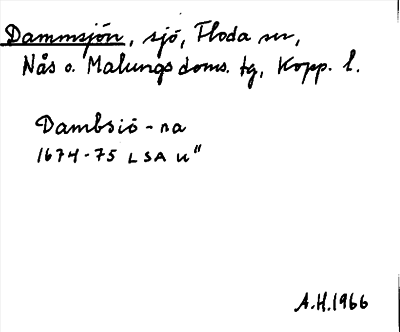 Dammsjön, sjö, Floda sn,
Nås o. Malungs doms. tg, Kopp. l.
Dambsiö-na
1674-75 LSA u"
A.H.1966